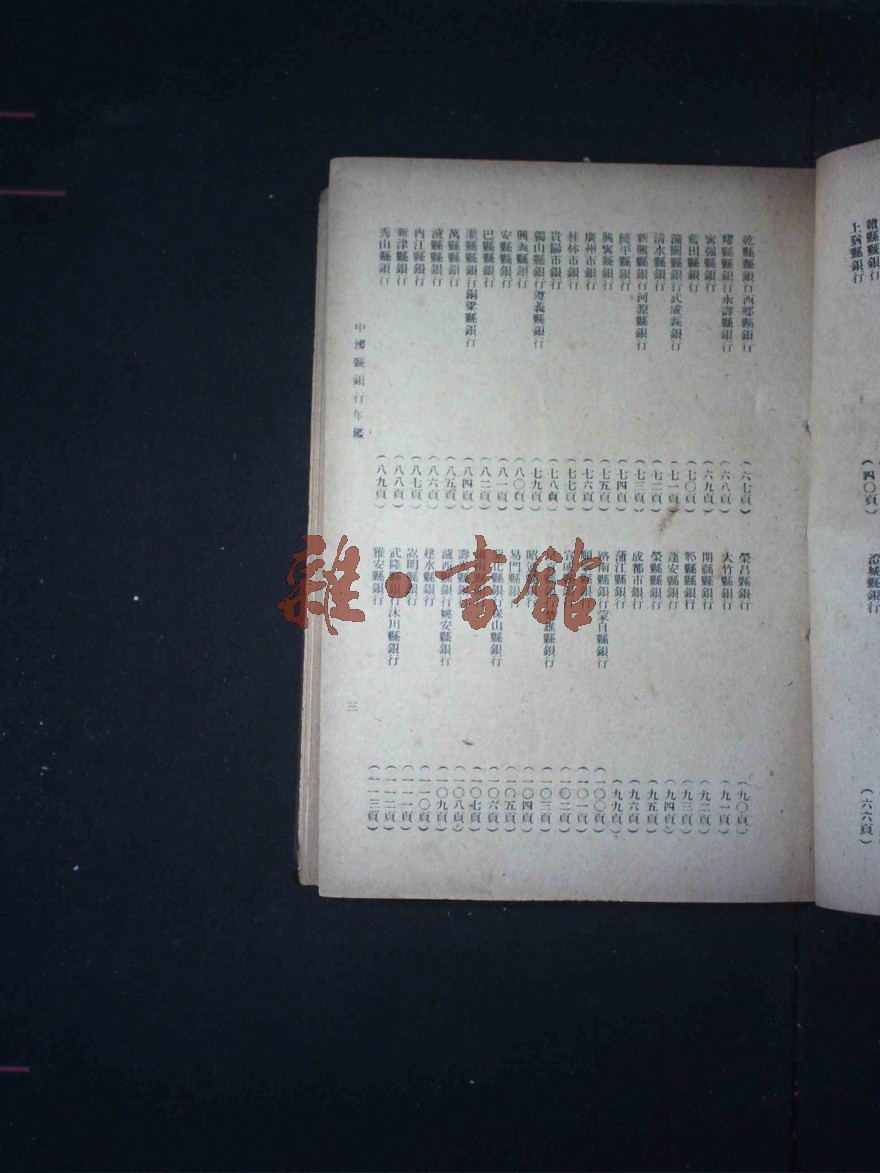 贛縣縣銀行
上猶縣銀行
(四〇頁)
(六六頁)
乾縣縣銀行西鄉縣銀行 (六七頁)
耀縣縣銀行永壽縣銀行 (六八頁)
寗强縣銀行 (六九頁)
藍田縣銀行 (七〇頁)
潼關縣銀行武威縣銀行 (七一頁)
清水縣銀行 (七二頁)
新興縣銀行河源縣銀行 (七三頁)
饒平縣銀行 (七四頁)
興寗縣銀行 (七五頁)
廣州市銀行 (七六頁)
桂林市銀行 (七七頁)
貴陽市銀行 (七八頁)
獨山縣銀行遵義縣銀行 (七九頁)
興義縣銀行 (八〇頁)
安縣縣銀行 (八一頁)
巴縣縣銀行 (八二頁)
縣銀行銅梁縣銀行 (八四頁)
萬縣縣銀行 (八五頁)
瀘縣縣銀行 (八六頁)
內江縣銀行 (八七頁)
新津縣銀行 (八八頁)
秀山縣銀行 (八九頁)
榮昌縣銀行 (九〇頁)
大竹縣銀行 (九一頁)
開縣縣銀行 (九二頁)
縣縣銀行 (九三頁)
蓬安縣銀行 (九四頁)
榮縣縣銀行 (九五頁)
成都市銀行 (九六頁)
蒲江縣銀行 (九九頁)
路南縣銀行蒙自縣銀行 (一〇〇頁)
(一〇一頁)
(一〇二頁)
(一〇三頁)
(一〇四頁)
易門縣銀 (一〇五頁)
化縣銀行保山縣銀行 (一〇六頁)
(一〇七頁)
(一〇八頁)
瀘西縣銀行姚安縣銀行 (一〇九頁)
建水縣銀行 (一一〇頁)
嵩明縣銀行 (一一一頁)
武隆縣銀行沐川縣銀行 (一一二頁)
雅安縣銀行 (一一三頁)
中國縣銀行年鑑
三
雜·書館